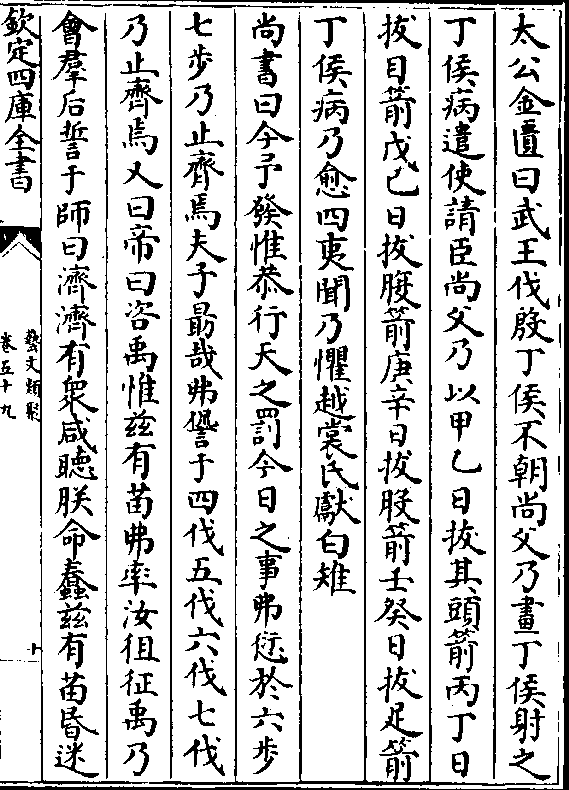 太公金匱曰武王伐殷丁侯不朝尚父乃畫丁侯射之
丁侯病遣使請臣尚父乃以甲乙日拔其頭箭丙丁日
拔目箭戊己日拔腹箭庚辛日拔股箭壬癸日拔足箭
丁侯病乃愈四夷聞乃懼越裳氏獻白雉
尚書曰今予發惟恭行天之罰今日之事弗愆於六步
七步乃止齊焉夫子勗哉弗愆于四伐五伐六伐七伐
乃止齊焉又曰帝曰咨禹惟兹有苗弗率汝徂征禹乃
會羣后誓于師曰濟濟有衆咸聽朕命蠢兹有苗昏迷
欽定四庫全書
藝文類聚
卷五十九
十